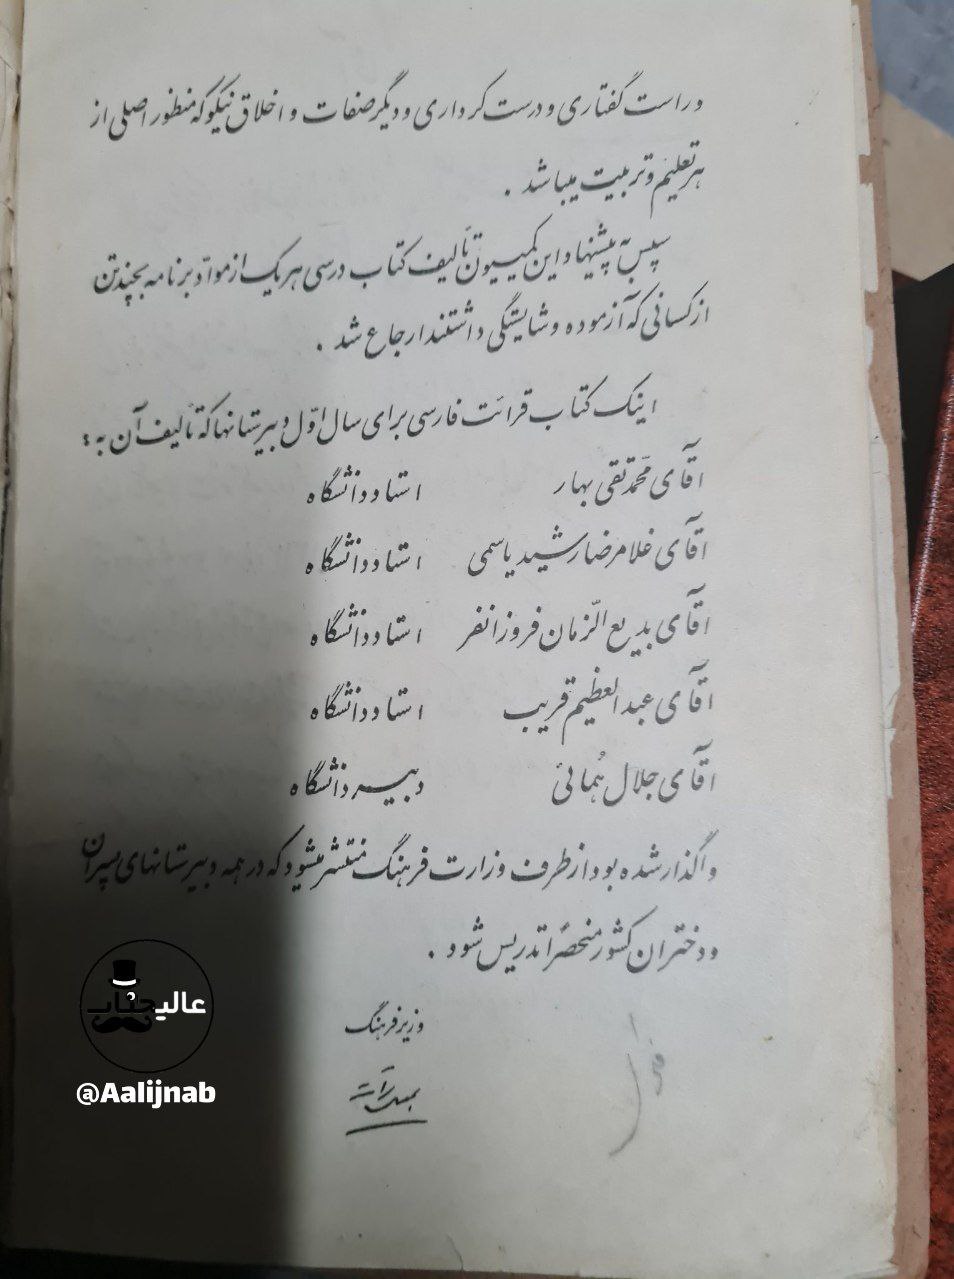 و راست گفتاری و درست کرداری و دیگر صفات و اخلاق نیکو که منظور اصلی از
هر تعلیم و تربیت میباشد .
سپس به پیشنهاد این کمیسیون تألیف کتاب درسی هر یک از موادّ برنامه بچند تن
از کسانی که آزموده و شایستگی داشتند ارجاع شد .
اینک کتاب قرائت فارسی برای سال اوّل دبیرستانها که تألیف آن به :
آقای محمّدتقی بهار استاد دانشگاه
آقای غلامرضا رشید یاسمی استاد دانشگاه
آقای بدیع الزّمان فروزانفر استاد دانشگاه
آقای عبدالعظیم قریب استاد دانشگاه
آقای جلال هُمائی دبیر دانشگاه
واگذار شده بود از طرف وزارت فرهنگ منتشر میشود که در همه دبیرستانهای پسران
و دختران کشور منحصراً تدریس شود .
وزیر فرهنگ
عالیجناب
@Aalijnab